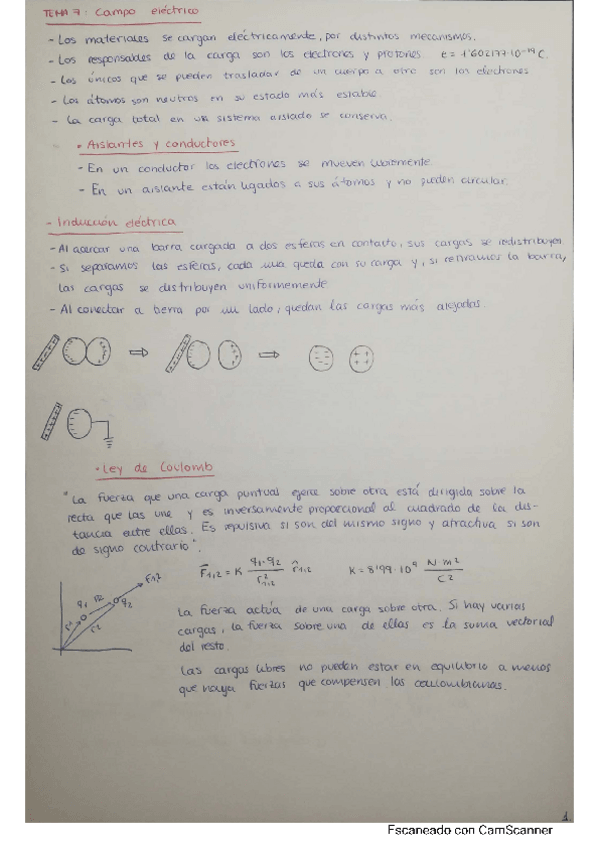 TEMA 7: Campo eléctrico
- Los materiales se cargan eléctricamente, por distintos mecanismos.
- Los responsables de la carga son los electrones y protones. e = 1'602177·10⁻¹⁹ C.
- Los únicos que se pueden trasladar de un cuerpo a otro son los electrones
- Los átomos son neutros en su estado más estable.
- La carga total en un sistema aislado se conserva.
• Aislantes y conductores
- En un conductor los electrones se mueven libremente.
- En un aislante están ligados a sus átomos y no pueden circular.
- Inducción eléctrica
- Al acercar una barra cargada a dos esferas en contacto, sus cargas se redistribuyen
- Si separamos las esferas, cada una queda con su carga y, si retiramos la barra,
las cargas se distribuyen uniformemente
- Al conectar a tierra por un lado, quedan las cargas más alejadas.
• Ley de Coulomb
"La fuerza que una carga puntual ejerce sobre otra está dirigida sobre la
recta que las une y es inversamente proporcional al cuadrado de la dis-
tancia entre ellas. Es repulsiva si son del mismo signo y atractiva si son
de signo contrario".
F⃗1,2 = K q1·q2 / r²1,2 r̂1,2    K = 8'99·10⁹ N·m² / C²
F1,2
q1 r12 q2
r1 r2
La fuerza actúa de una carga sobre otra. Si hay varias
cargas, la fuerza sobre una de ellas es la suma vectorial
del resto.
Las cargas libres no pueden estar en equilibrio a menos
que haya fuerzas que compensen las coulombianas.
1
Escaneado con CamScanner